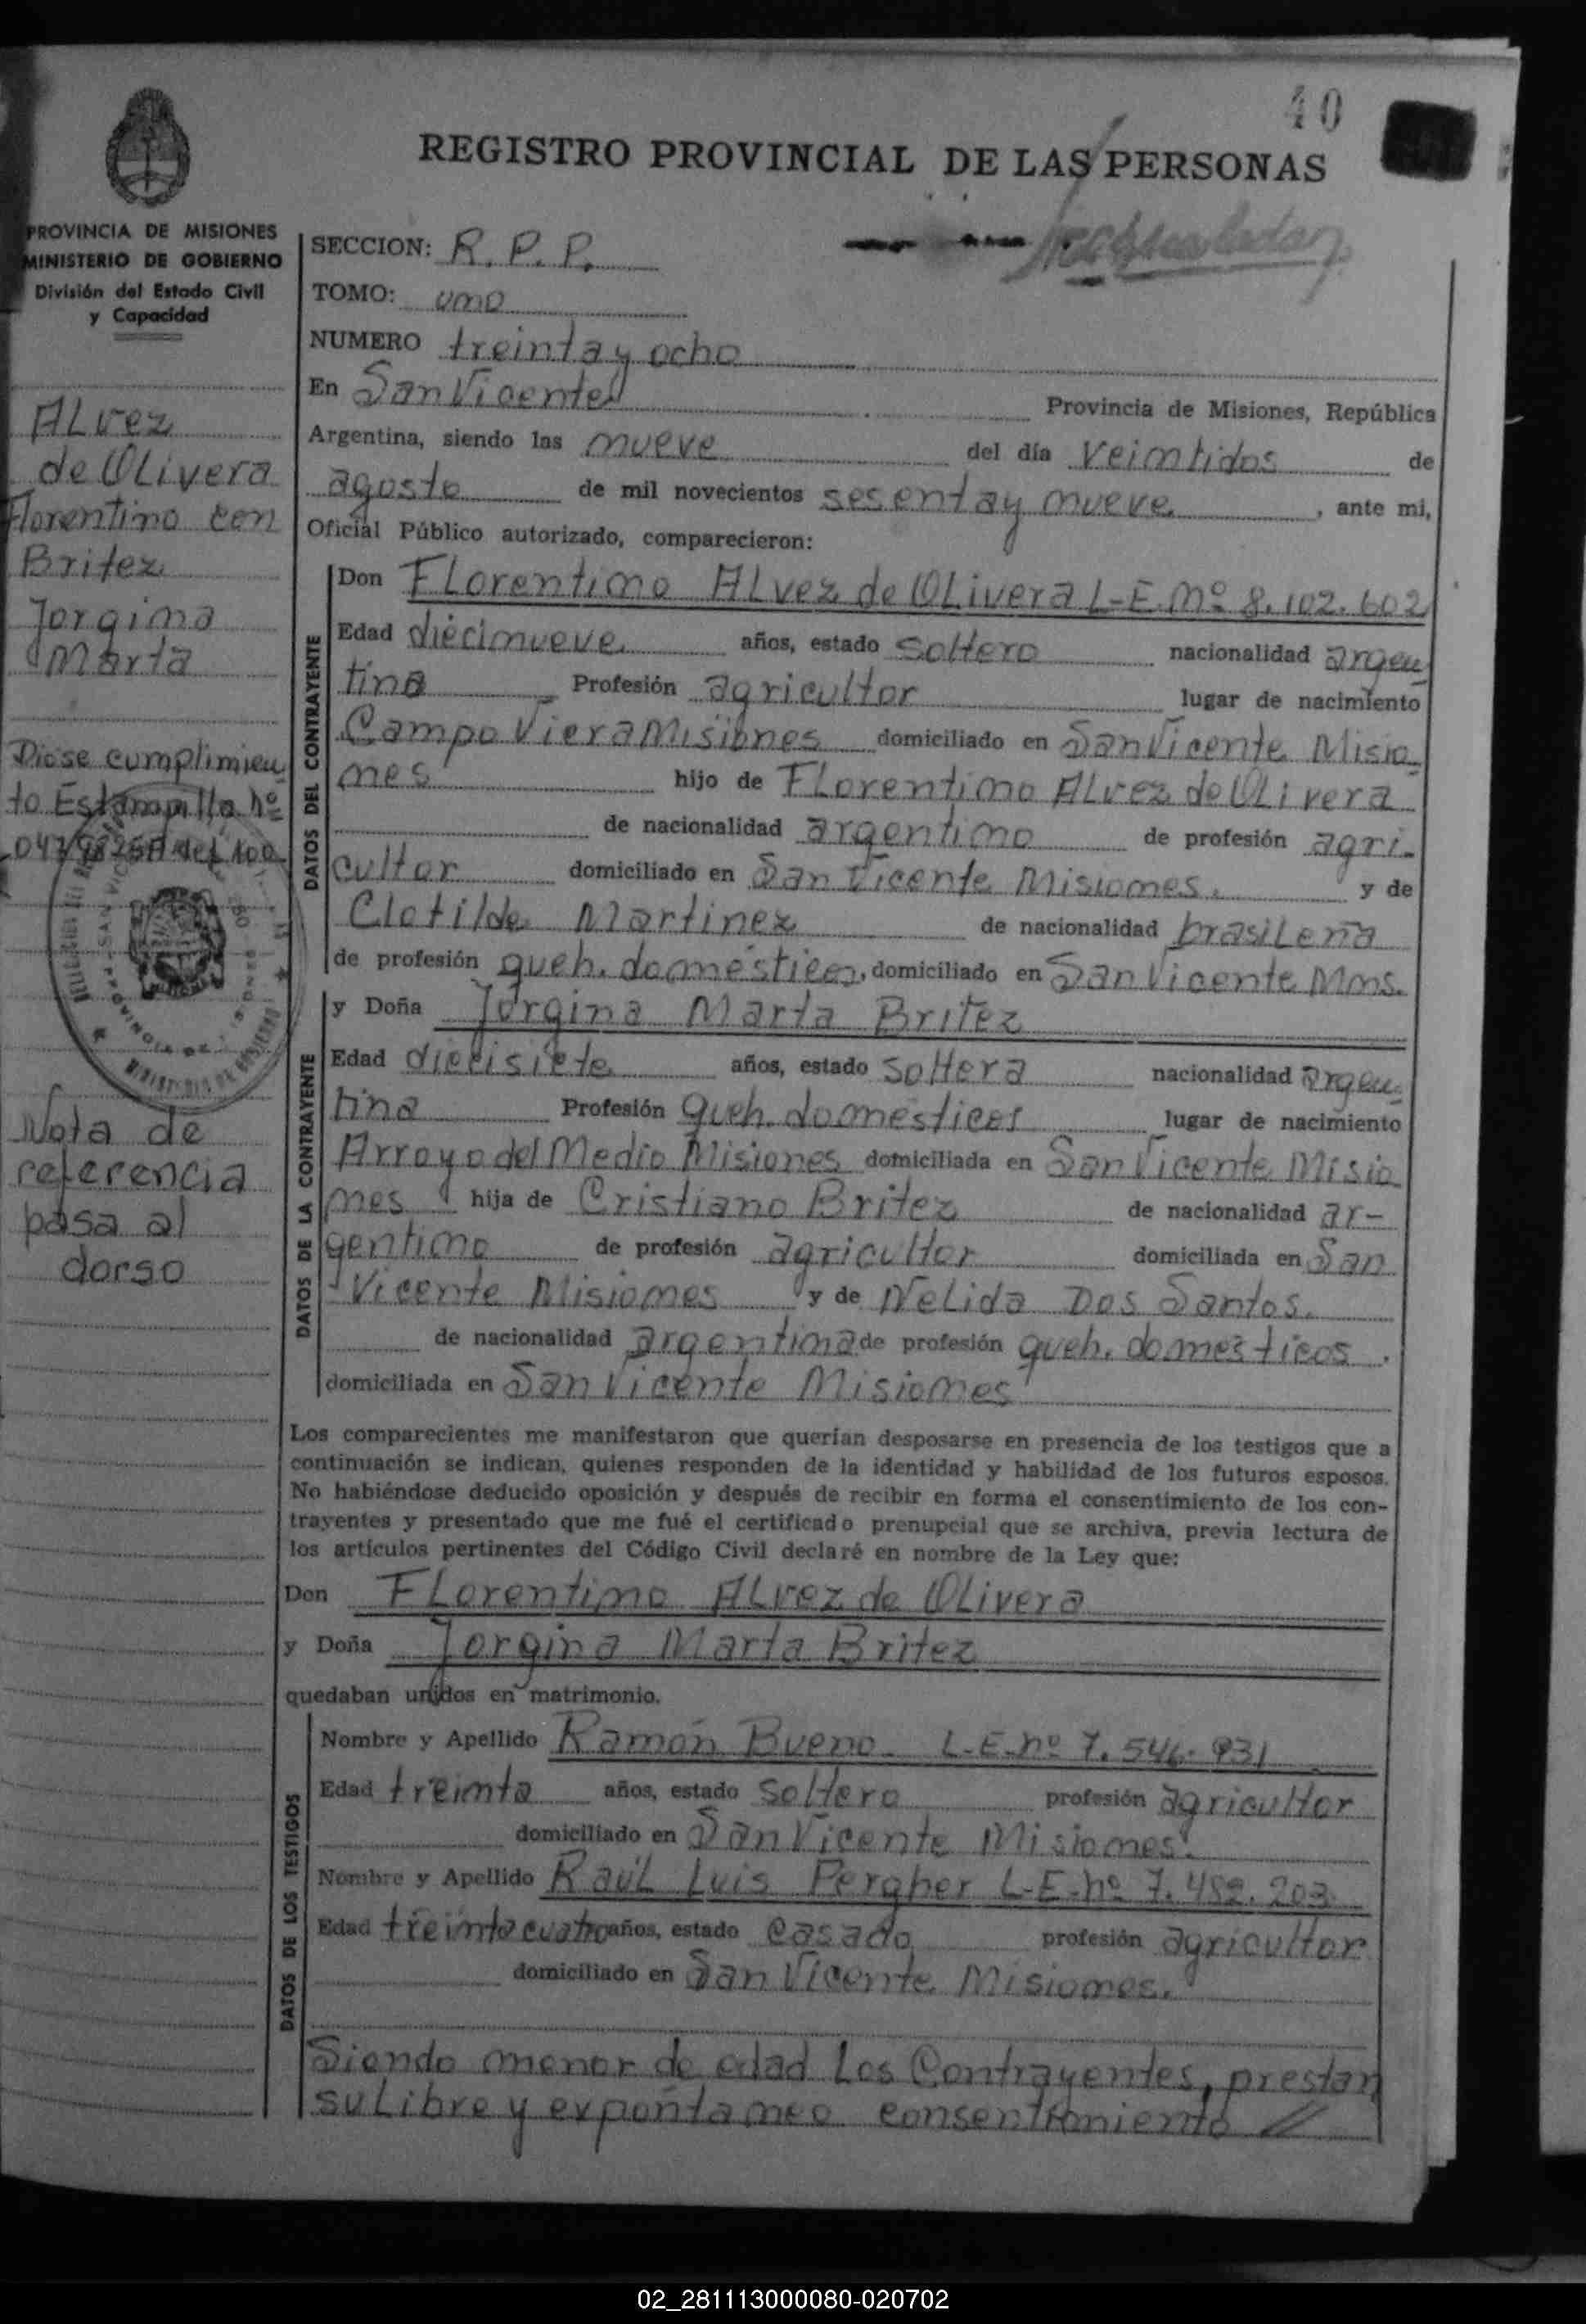 40
REGISTRO PROVINCIAL DE LAS PERSONAS
PROVINCIA DE MISIONES
MINISTERIO DE GOBIERNO
División del Estado Civil
y Capacidad
ALvez
de OLivera
Florentino con
Britez
Jorgina
Marta
Diose cumplimien
to Estampilla Nº
Nota de
referencia
pasa al
dorso
SECCION: R. P. P.
TOMO: uno
NUMERO treinta y ocho
En San Vicente Provincia de Misiones, República
Argentina, siendo las nueve del día veintidos de
agosto de mil novecientos sesenta y nueve, ante mi,
Oficial Público autorizado, comparecieron:
DATOS DEL CONTRAYENTE
Don Florentino ALvez de OLivera L-E. Nº 8.102.602
Edad diecinueve años, estado soltero nacionalidad argen
tina Profesión agricultor lugar de nacimiento
Campo Viera Misiones domiciliado en San Vicente Misio
nes hijo de Florentino ALvez de OLivera
de nacionalidad argentino de profesión agri-
cultor domiciliado en San Vicente Misiones. y de
Clotilde Martinez de nacionalidad brasileña
de profesión queh. domésticos, domiciliado en San Vicente Mnes.
DATOS DE LA CONTRAYENTE
y Doña Jorgina Marta Britez
Edad diecisiete años, estado soltera nacionalidad argen
tina Profesión queh. domésticos lugar de nacimiento
Arroyo del Medio Misiones domiciliada en San Vicente Misio
nes hija de Cristiano Britez de nacionalidad ar-
gentino de profesión agricultor domiciliada en San
Vicente Misiones y de Nelida Dos Santos.
de nacionalidad argentina de profesión queh. domésticos.
domiciliada en San Vicente Misiones
Los comparecientes me manifestaron que querían desposarse en presencia de los testigos que a
continuación se indican, quienes responden de la identidad y habilidad de los futuros esposos.
No habiéndose deducido oposición y después de recibir en forma el consentimiento de los con-
trayentes y presentado que me fué el certificado prenupcial que se archiva, previa lectura de
los artículos pertinentes del Código Civil declaré en nombre de la Ley que:
Don Florentino ALvez de OLivera
y Doña Jorgina Marta Britez
quedaban unidos en matrimonio.
DATOS DE LOS TESTIGOS
Nombre y Apellido Ramón Bueno L-E-nº 7.546.931
Edad treinta años, estado soltero profesión agricultor
domiciliado en San Vicente Misiones.
Nombre y Apellido Raúl Luis Pergher L-E-nº 7.482.203
Edad treintacuatro años, estado casado profesión agricultor
domiciliado en San Vicente Misiones.
Siendo menor de edad Los Contrayentes, prestan
su Libre y expontaneo consentimiento //
02_281113000080-020702